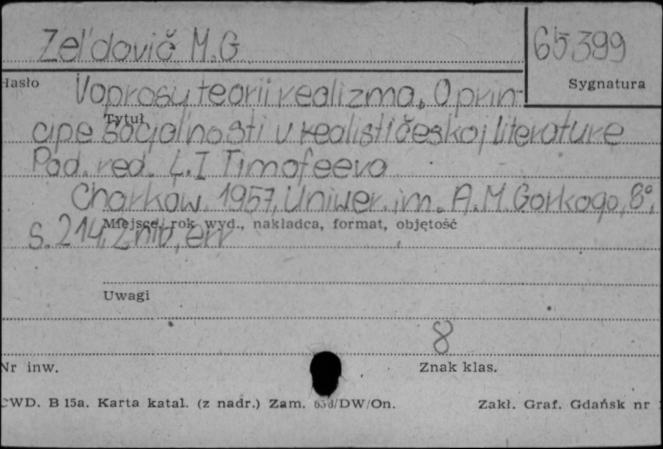 Zel'dovič M.G.
65399
Hasło
Sygnatura
Voprosy teorii realizma. O prin-
Tytuł
cipe socjalnosti v realističeskoj literature
Pod. red. L.I Timofeeva
Charkow. 1957, Uniwer. im. A.M. Gorkogo, 8°,
s. 214, 2 nlb, err
Miejsce, rok wyd., nakładca, format, objętość
Uwagi
8
Nr inw.
Znak klas.
CWD. B 15a. Karta katal. (z nadr.) Zam. /DW/On.
Zakł. Graf. Gdańsk nr